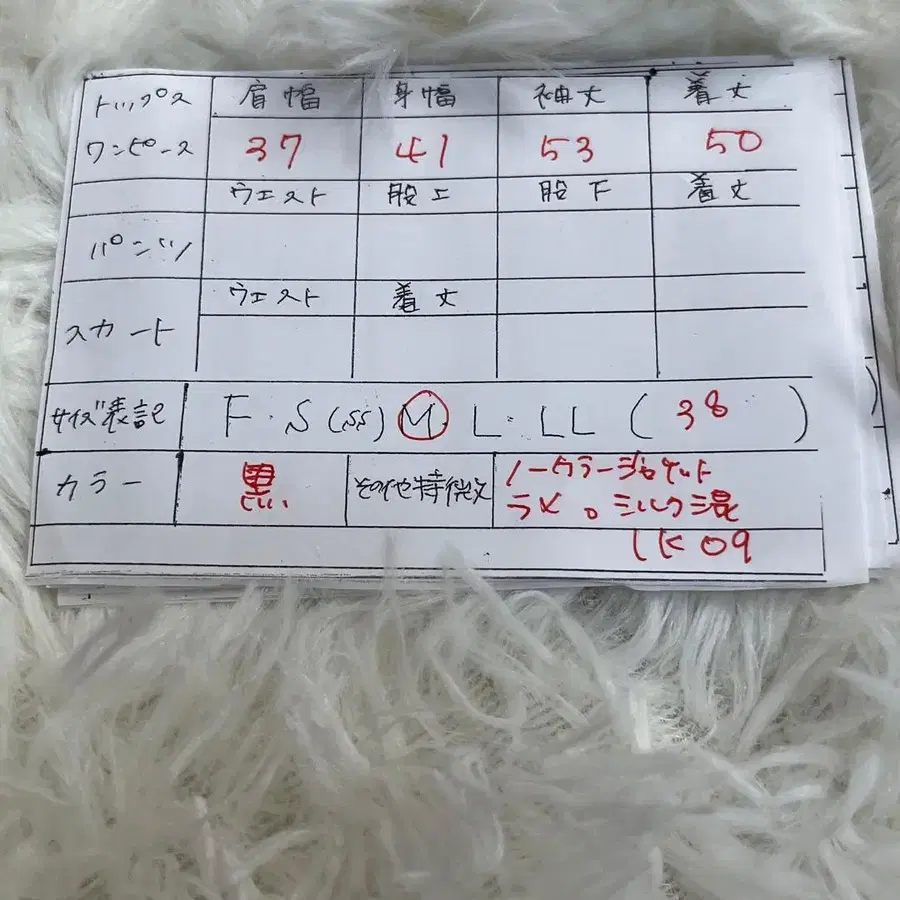 トップス 肩幅 身幅 袖丈 着丈
ワンピース 37 41 53 50
ウエスト 股上 股下 着丈
パンツ
ウエスト 着丈
スカート
サイズ表記 F・S(SS)M・L・LL(38)
カラー 黒 その他特徴 ノーカラージャケット
ラメ。シルク混
LK09